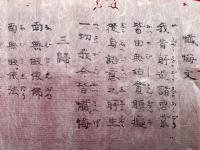 懺悔文
我昔所造諸悪業
皆由無始貪瞋癡
従身語意之所生
一切我今皆懺悔
三歸
南無帰依佛
南無帰依法